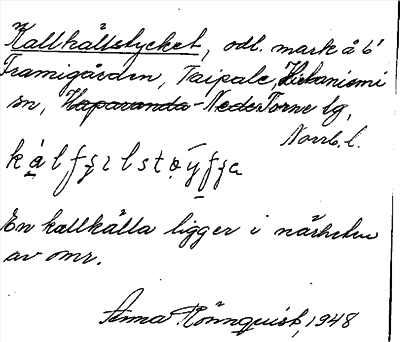 Kallkällstycket, odl. mark å b¹
Framigården, Taipale, Hietaniemi
sn, Haparanda-NederTorne tg,
Norrb. l.
En kallkälla ligger i närheten
av omr.
Anna Rönnquist, 1948